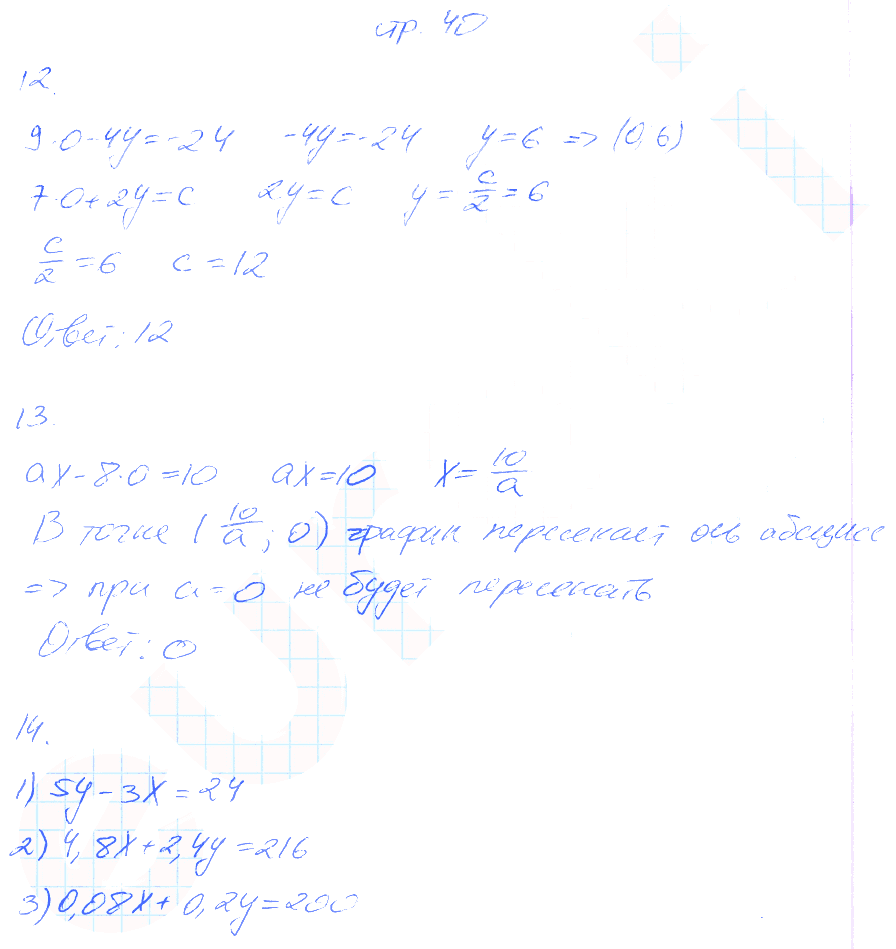 стр. 40
12.
9·0-4y=-24 -4y=-24 y=6 => (0,6)
7·0+2y=c 2y=c y=c/2=6
c/2=6 c=12
Ответ: 12
13.
ax-8·0=10 ax=10 x=10/a
В точке (10/a; 0) график пересекает ось абсцисс
=> при a=0 не будет пересекать
Ответ: 0
14.
1) 5y-3x=24
2) 4,8x+2,4y=216
3) 0,08x+0,2y=200